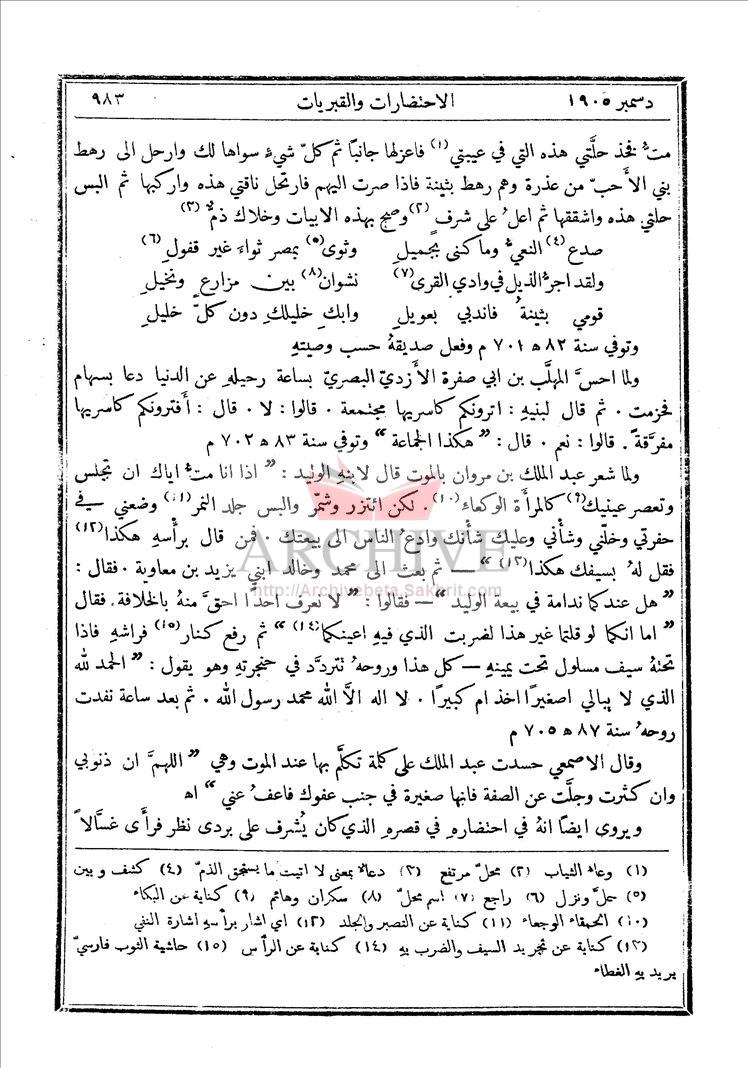 دسمبر ١٩٠٥ الاحتضارات والقبريات ٩٨٣
متُّ فخذ حلَّتي هذه التي في عيبتي (١) فاعزلها جانبًا ثم كلّ شيءٍ سواها لك وارحل الى رهط
بني الأَحبّ من عذرة وهم رهط بثينة فاذا صرت اليهم فارتحل ناقتي هذه واركبها ثم البس
حلتي هذه واشققها ثم اعلُ على شرف (٢) وصح بهذه الابيات وخلاك ذمٌّ (٣)
صدع (٤) النعيُّ وما كنى بجميلِ وثوى (٥) بمصر ثواءَ غير قفولِ (٦)
ولقد اجرُّ الذيل في وادي القرى (٧) نشوان (٨) بين مزارعٍ ونخيلِ
قومي بثينةُ فاندبي بعويلِ وابكِ خليلكِ دون كلّ خليلِ
وتوفي سنة ٨٢ ﻫ ٧٠١ م وفعل صديقهُ حسب وصيتهِ
ولما احسَّ المهلَّب بن ابي صفرة الأَزديّ البصريّ بساعة رحيلهِ عن الدنيا دعا بسهام
فحزمت . ثم قال لبنيهِ : اترونكم كاسريها مجتمعة . قالوا : لا . قال : أفترونكم كاسريها
مفرَّقةً . قالوا : نعم . قال : " هكذا الجماعة " وتوفي سنة ٨٣ ﻫ ٧٠٢ م
ولما شعر عبد الملك بن مروان بالموت قال لابنهِ الوليد : " اذا انا متُّ اياك ان تجلس
وتعصر عينيك (٩) كالمرأة الوكعاءِ (١٠) . لكن ائتزر وشمّر والبس جلد النمر (١١) وضعني في
حفرتي وخلّني وشأني وعليك شأنك وادعُ الناس الى بيعتك . فمن قال برأسهِ هكذا (١٢)
فقل لهُ بسيفك هكذا (١٣) " — ثم بعث الى محمد وخالد ابني يزيد بن معاوية . فقال :
" هل عندكما ندامة في بيعة الوليد " — فقالوا : " لا نعرف احدًا احقَّ منهُ بالخلافة . فقال
" اما انكما لو قلتما غير هذا لضربت الذي فيهِ اعينكما (١٤) " ثم رفع كنار (١٥) فراشهِ فاذا
تحتهُ سيف مسلول تحت يمينهِ — كل هذا وروحهُ تتردَّد في حنجرتهِ وهو يقول : " الحمد لله
الذي لا يبالي اصغيرًا اخذ ام كبيرًا . لا اله الاَّ الله محمد رسول الله . ثم بعد ساعة نفدت
روحهُ سنة ٨٧ ﻫ ٧٠٥ م
وقال الاصمعي حسدت عبد الملك على كلمة تكلَّم بها عند الموت وهي " اللهمَّ ان ذنوبي
وان كثرت وجلَّت عن الصفة فانها صغيرة في جنب عفوك فاعفُ عني " اه
ويروى ايضًا انهُ في احتضارهِ في قصرهِ الذي كان يُشرف على بردى نظر فرأى غسَّالاً
(١) وعاء الثياب (٢) محلّ مرتفع (٣) دعاء بمعنى لا اتيت ما يستحق الذمّ (٤) كشف وبين
(٥) حلَّ ونزل (٦) راجع (٧) اسم محلّ (٨) سكران وهائم (٩) كناية عن البكاء
(١٠) الحمقاء الوجعاء (١١) كناية عن التصبر والجلد (١٢) اي اشار برأسهِ اشارة النفي
(١٣) كناية عن تجريد السيف والضرب بهِ (١٤) كناية عن الرأس (١٥) حاشية الثوب فارسيّ
يريد بهِ الغطاء
ARCHIVE
http://Archivebeta.Sakhrit.com